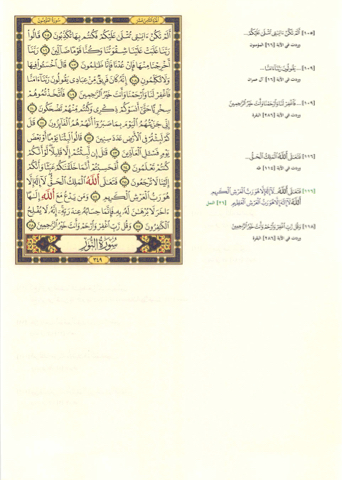 أَلَمْ تَكُنْ ءَايَٰتِى تُتْلَىٰ عَلَيْكُمْ فَكُنتُم بِهَا تُكَذِّبُونَ ۝ قَالُوا۟
رَبَّنَا غَلَبَتْ عَلَيْنَا شِقْوَتُنَا وَكُنَّا قَوْمًا ضَآلِّينَ ۝ رَبَّنَآ
أَخْرِجْنَا مِنْهَا فَإِنْ عُدْنَا فَإِنَّا ظَٰلِمُونَ ۝ قَالَ ٱخْسَـُٔوا۟ فِيهَا
وَلَا تُكَلِّمُونِ ۝ إِنَّهُۥ كَانَ فَرِيقٌ مِّنْ عِبَادِى يَقُولُونَ رَبَّنَآ ءَامَنَّا
فَٱغْفِرْ لَنَا وَٱرْحَمْنَا وَأَنتَ خَيْرُ ٱلرَّٰحِمِينَ ۝ فَٱتَّخَذْتُمُوهُمْ
سِخْرِيًّا حَتَّىٰٓ أَنسَوْكُمْ ذِكْرِى وَكُنتُم مِّنْهُمْ تَضْحَكُونَ ۝
إِنِّى جَزَيْتُهُمُ ٱلْيَوْمَ بِمَا صَبَرُوٓا۟ أَنَّهُمْ هُمُ ٱلْفَآئِزُونَ ۝ قَٰلَ
كَمْ لَبِثْتُمْ فِى ٱلْأَرْضِ عَدَدَ سِنِينَ ۝ قَالُوا۟ لَبِثْنَا يَوْمًا أَوْ بَعْضَ
يَوْمٍ فَسْـَٔلِ ٱلْعَآدِّينَ ۝ قَٰلَ إِن لَّبِثْتُمْ إِلَّا قَلِيلًا لَّوْ أَنَّكُمْ
كُنتُمْ تَعْلَمُونَ ۝ أَفَحَسِبْتُمْ أَنَّمَا خَلَقْنَٰكُمْ عَبَثًا وَأَنَّكُمْ
إِلَيْنَا لَا تُرْجَعُونَ ۝ فَتَعَٰلَى ٱللَّهُ ٱلْمَلِكُ ٱلْحَقُّ لَآ إِلَٰهَ إِلَّا
هُوَ رَبُّ ٱلْعَرْشِ ٱلْكَرِيمِ ۝ وَمَن يَدْعُ مَعَ ٱللَّهِ إِلَٰهًا
ءَاخَرَ لَا بُرْهَٰنَ لَهُۥ بِهِۦ فَإِنَّمَا حِسَابُهُۥ عِندَ رَبِّهِۦٓ إِنَّهُۥ لَا يُفْلِحُ
ٱلْكَٰفِرُونَ ۝ وَقُل رَّبِّ ٱغْفِرْ وَٱرْحَمْ وَأَنتَ خَيْرُ ٱلرَّٰحِمِينَ ۝
سُورَةُ النُّورِ
٣٤٩
[١٠٥] أَلَمْ تَكُنْ ءَايَٰتِى تُتْلَىٰ عَلَيْكُمْ...
وردت في الآية [٦٦] المؤمنون
[١٠٩] يَقُولُونَ رَبَّنَآ ءَامَنَّا...
وردت في الآية [١٦] آل عمران
[١٠٩] فَٱغْفِرْ لَنَا وَٱرْحَمْنَا وَأَنتَ خَيْرُ ٱلرَّٰحِمِينَ
وردت في الآية [٢٨٦] البقرة
[١١٦] فَتَعَٰلَى ٱللَّهُ ٱلْمَلِكُ ٱلْحَقُّ...
وردت في الآية [١١٤] طه
[١١٦] ٱللَّهُ... لَآ إِلَٰهَ إِلَّا هُوَ رَبُّ ٱلْعَرْشِ ٱلْكَرِيمِ
ٱللَّهُ لَآ إِلَٰهَ إِلَّا هُوَ رَبُّ ٱلْعَرْشِ ٱلْعَظِيمِ [٢٦] النمل
[١١٨] وَقُل رَّبِّ ٱغْفِرْ وَٱرْحَمْ وَأَنتَ خَيْرُ ٱلرَّٰحِمِينَ
وردت في الآية [٢٨٦] البقرة